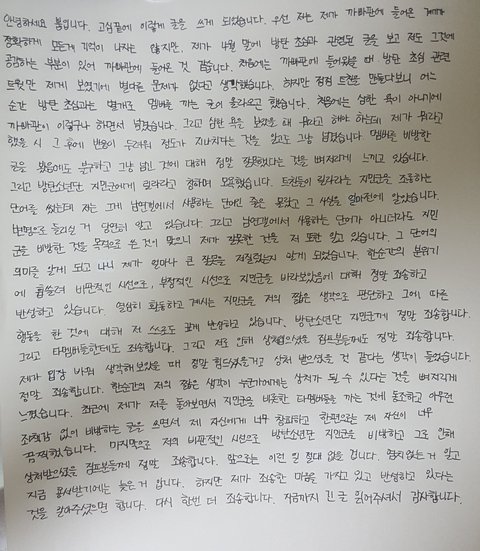 안녕하세요 봄입니다. 고심끝에 이렇게 글을 쓰게 되었습니다. 우선 저는 제가 까빠판에 들어온 계기가
정확하게 모든게 기억이 나지는 않지만, 제가 나월 말에 방탄 초심과 관련된 글을 보고 저도 그것에
공감하는 부분이 있어 까빠판에 들어온 것 같습니다. 처음에는 까빠판에 들어왔을 때 방탄 초심 관련
트윗만 제게 보였기에 별다른 문제가 없다고 생각했습니다. 하지만 점점 트친을 만들다보니 어느
순간 방탄 초심과는 별개로 멤버를 까는 글이 올라오곤 했습니다. 처음에는 심한 욕이 아니기에
까빠판이 이렇구나 하면서 넘겼습니다. 그리고 심한 욕을 봤었을 때 뭐라고 해야 하는데 제가 뭐라고
했을 시 그 후에 반응이 두려워 정도가 지나치다는 것을 알고도 그냥 넘겼습니다. 멤버를 비방한
글을 봤음에도 불구하고 그냥 넘긴 것에 대해 정말 잘못했다는 것을 뼈저리게 느끼고 있습니다.
그리고 방탄소년단 지민군에게 라고 칭하며 모욕했습니다. 트친들이 지민군을 조롱하는
단어를 썼는데 저는 그게 남연갤에서 사용하는 단어인 줄은 몰랐고 그 사실을 얼마전에 알았습니다.
변명으로 들리실 거 당연히 알고 있습니다. 그리고 남연갤에서 사용하는 단어가 아니더라도 지민
군을 비방한 것을 목적으로 쓴 것이 맞으니 제가 잘못한 것을 저 또한 알고 있습니다. 그 단어의
의미를 알게 되고 나니 제가 얼마나 큰 잘못을 저질렀는지 알게 되었습니다. 한순간의 분위기
에 휩쓸려 비판적인 시선으로, 부정적인 시선으로 지민군을 바라보았음에 대해 정말 죄송하고
반성하고 있습니다. 열심히 활동하고 계시는 지민군을 저의 짧은 생각으로 판단하고 그에 따른
행동을 한 것에 대해 저 스스로도 깊게 반성하고 있습니다. 방탄소년단 지민군께 정말 죄송합니다.
그리고 타멤버분들한테도 죄송합니다. 그리고 저로 인해 상처받으셨을 침프분들께도 정말 죄송합니다.
제가 입장 바꿔 생각해보았을 때 정말 힘드셨을거고 상처 받으셨을 것 같다는 생각이 들었습니다.
정말 죄송합니다. 한순간의 저의 짧은 생각이 누군가에게는 상처가 될 수 있다는 것을 뼈저리게
느꼈습니다. 최근에 제가 저를 돌아보면서 지민군을 비롯한 타멤버들을 까는 것에 동조하고 아무런
죄책감 없이 비방하는 글을 쓰면서 제 자신에게 너무 창피하고 한편으로는 제 자신이 너무
끔찍했습니다. 마지막으로 저의 비판적인 시선으로 방탄소년단 지민군을 비방하고 그로 인해
상처받으셨을 침프분들께 정말 죄송합니다. 앞으로는 이런 일 절대 없을 겁니다. 염치없는 거 알고
지금 용서받기에는 늦은 거 압니다. 하지만 제가 죄송한 마음을 가지고 있고 반성하고 있다는
것을 알아주셨으면 합니다. 다시 한번 더 죄송합니다. 지금까지 긴 글 읽어주셔서 감사합니다.